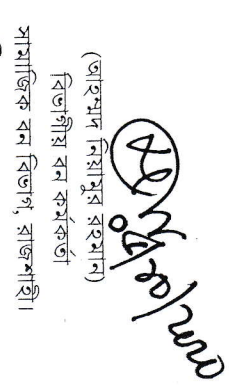 (আহম্মদ নিয়ামুর রহমান)
বিভাগীয় বন কর্মকর্তা
সামাজিক বন বিভাগ, রাজশাহী।